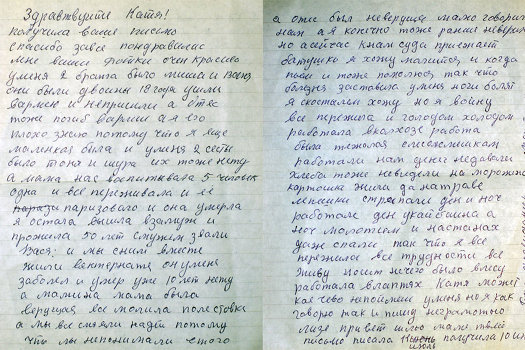 Здравствуйте Катя!
получила ваше письмо
спасибо за все пондравилис
мне ваши фотки очен красиво
у меня 2 брата было миша и Вася
они были двоины 18 года ушли
в армею и непришли а отес
тоже погиб в армии а я его
плохо знаю потому что я еще
маленкая была и у меня 2 сестры
было тоня и шура их тоже нету
а мама нас воспитывала 5 человек
одна и все переживала и ее
паризовало и она умерла
я остала вышла взамуж и
прожила 50 лет с мужем звали
Вася и мы с ним вместе
жили в интернате он у меня
заболел и умер уже 10 лет нету
а мамина мама была
верущая все молила после товка
а мы все смеяли над ней потому
что мы непонимали этого
а отес был неверущи мало говорил
нам а я конечно тоже ранше неверила
но а сейчас к нам суда приежает
батушко я хожу молится и когда
пьеи и тоже помолюся так что
болезня заставила у меня ноги болят
я с костылем хожу но я войну
все пережила и голодом холодом
работала в колхозе работа
была тяжолая с мележишкам
работали нам денег недавали
хлеба тоже невидели на мороженой
картошке жили да на траве
лепешки стрепали ден и ноч
работали ден у комбайина а
ноч молотием и на станах
даже спали так что я все
пережила все трудности все
живу носит нечего было в лесу
работала в лаптях Катя может
кае чево непоймеш у меня но я как
говорю так и пишу неграмотно
Лизе привет шлю маме твоей
писмо писала 11 июля получила 10 июля